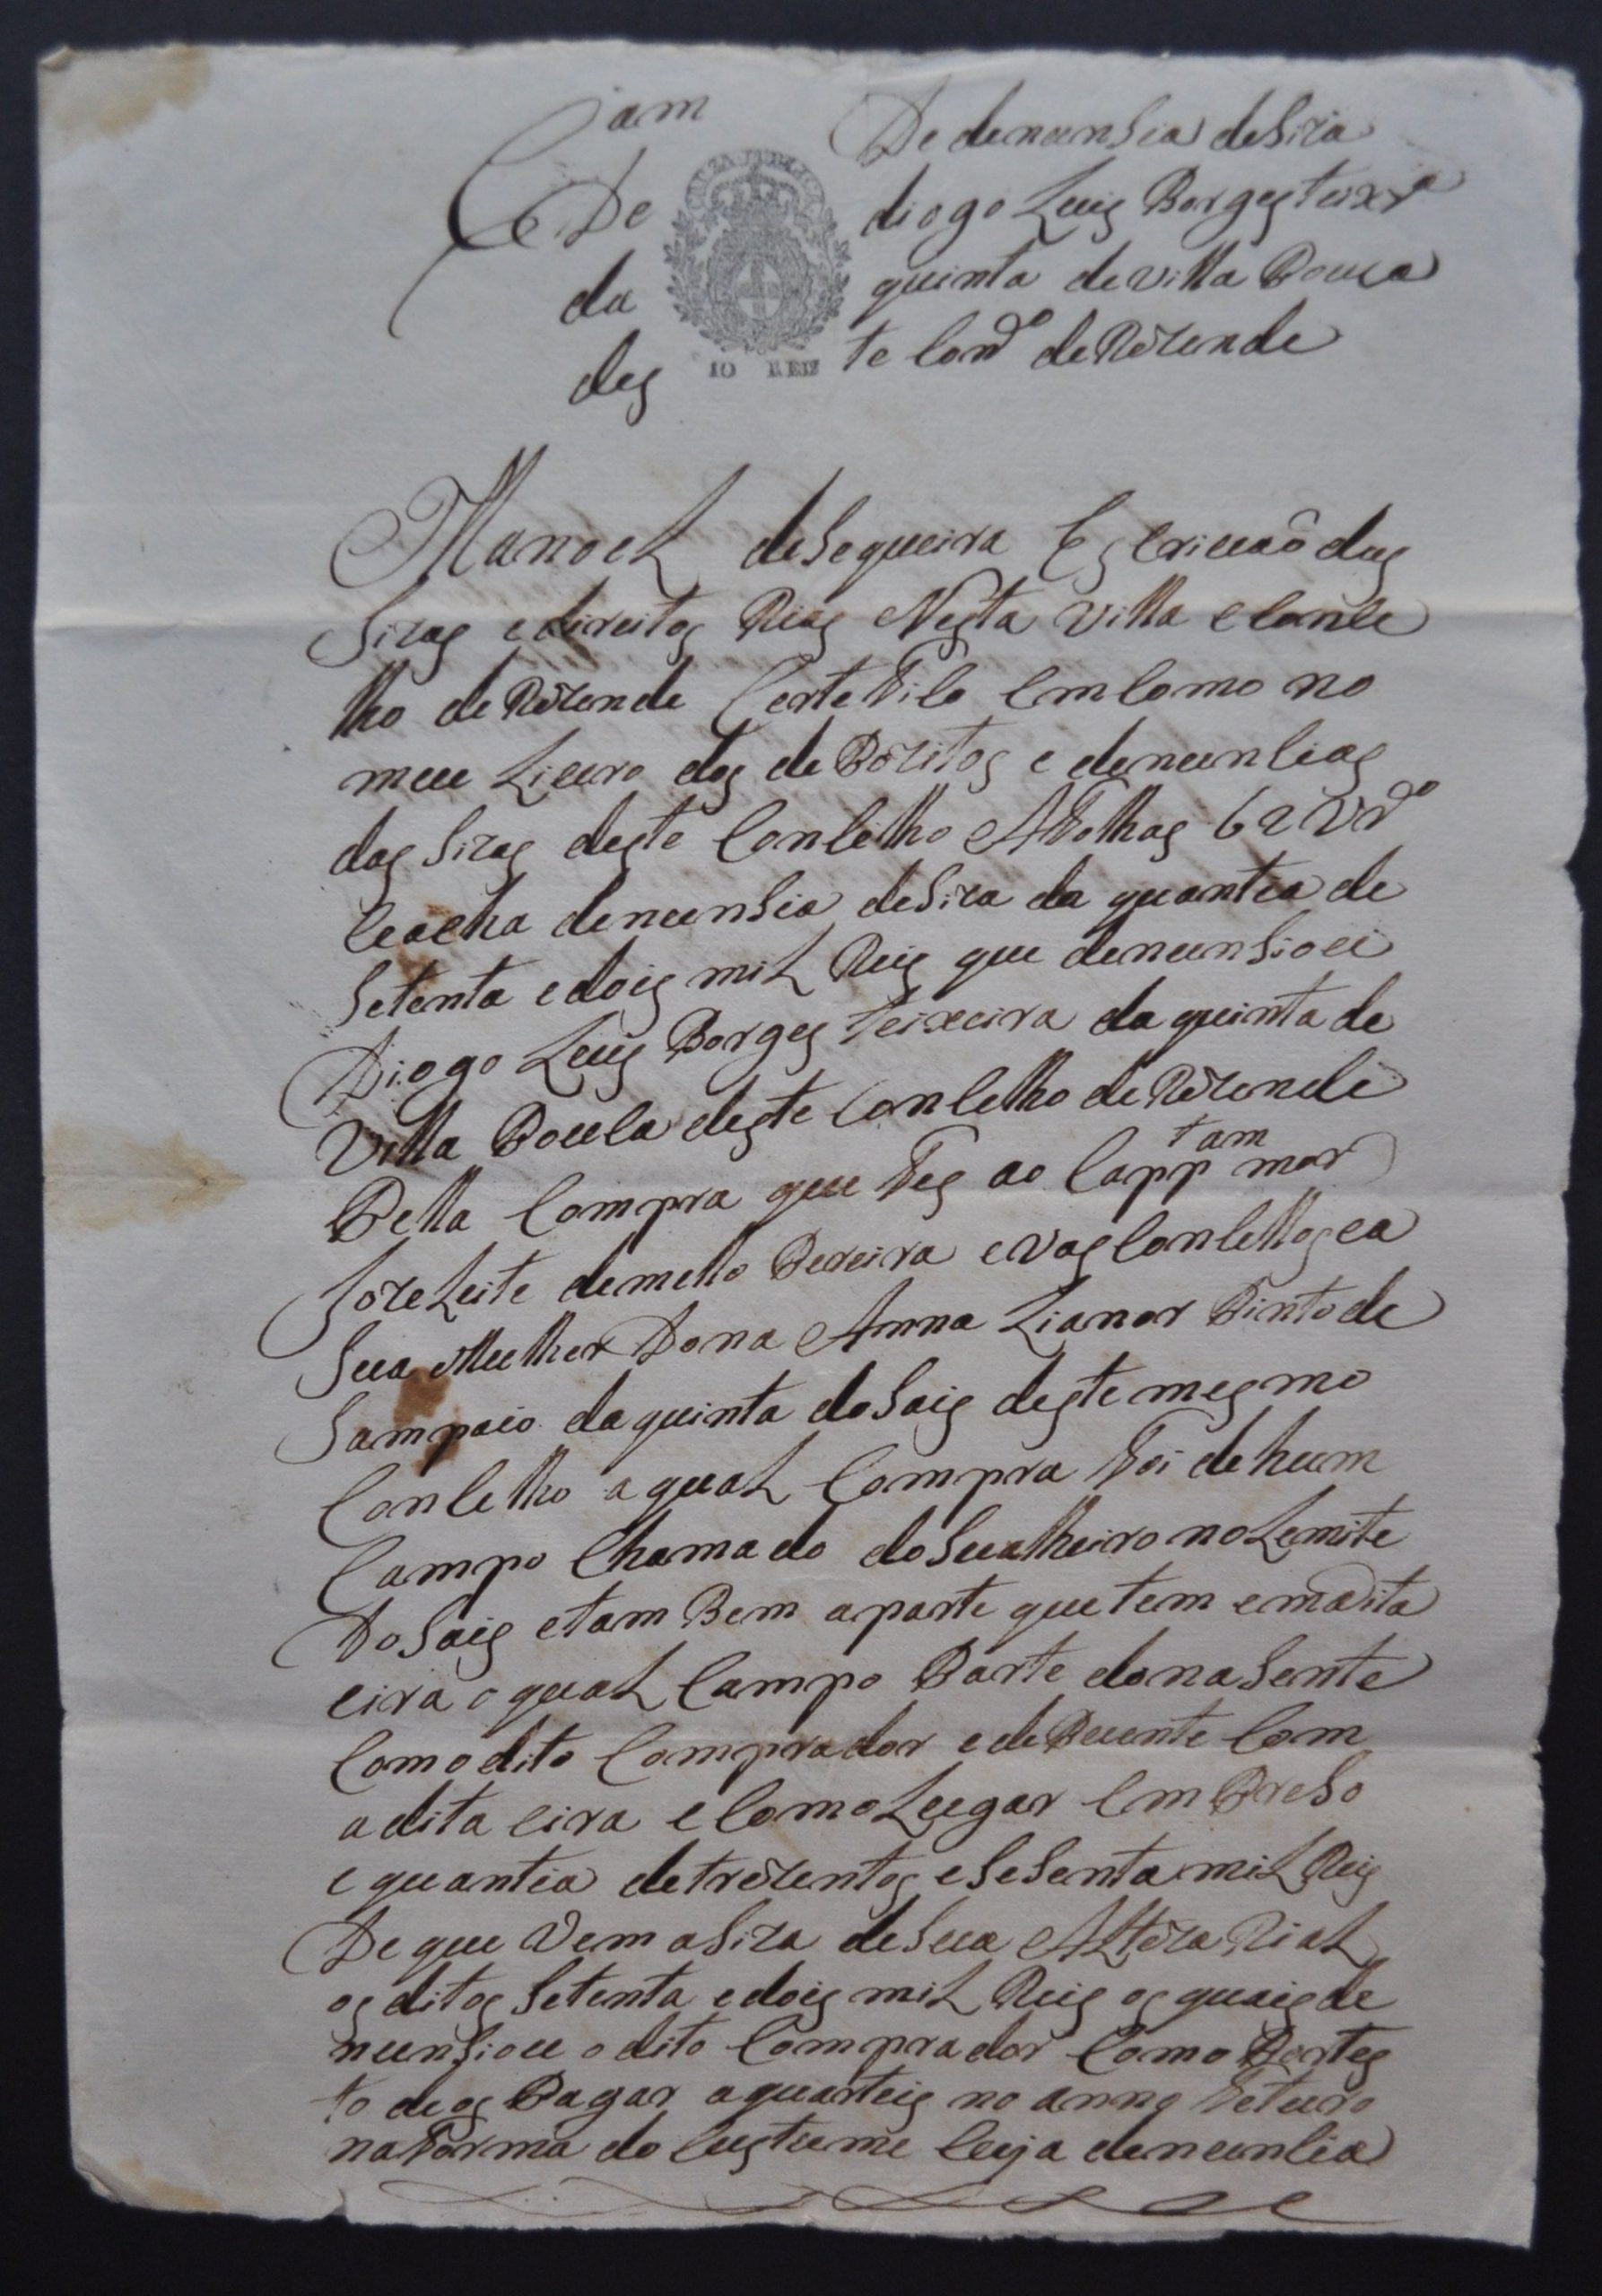 Cam De denunsia de Siza
De diogo Luis Borges teixra
da quinta de villa Pouca
des te Condo de Rezende
10 REIS
Manoel de Sequeira Escriuaõ das
Sizas e direitos Riais Nesta villa e Conce
lho de Rezende Certefico Em Como no
meu Liuro dos de Pozitos e denuncias
das Sizas deste Concelho A folhas 62 Vdo
Ce acha denunsia de Siza da quantia de
Setenta e dois mil Reis que denunsiou
Diogo Luis Borges teixeira da quinta de
Villa Pouca deste Concelho de Rezende
Pella Compra que fes ao Capptam mor
Joze Leite de mello Pereira e vasConcellos e a
Sua Mulher Dona Anna Lianor Pinto de
Sampaio da quinta do Sais deste mesmo
Concelho a qual Compra foi de hum
Campo Chamado do Sualheiro no Lemite
Do Sais e tam Bem a parte que tem em a dita
eira o qual Campo Parte do naSente
Com o dito Comprador e de Puente Com
a dita eira e Com o Lugar Em PreSo
e quantia de trezentos e SeSenta mil Reis
De que Vem a Siza de Sua Alteza Rial
os ditos Setenta e dois mil Reis os quais de
nunsiou o dito Comprador Com o Portes
to de os Pagar a quarteis no anno feturo
na forma do Custume Cuja denuncia